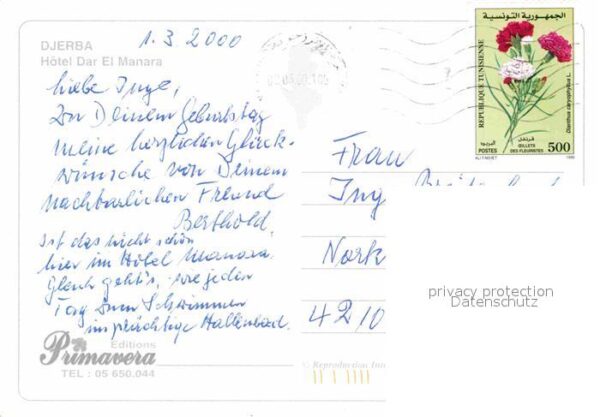 DJERBA
Hôtel Dar El Manara
1.3.2000
liebe Inge,
Zu Deinem Geburtstag
meine herzlichen Glück-
wünsche von Deinem
nachbarlichen Freund
Berthold.
Ist das nicht schön
hier im Hotel Manara.
Gleich geht's, wie jeden
Tag zum Schwimmen
ins prächtige Hallenbad.
Editions
Primavera
TEL : 05 650.044
الجمهورية التونسية
REPUBLIQUE TUNISIENNE
Dianthus caryophyllus L.
قرنفل
البريد
POSTES
ŒILLETS
DES FLEURISTES
500
Frau
Ing
Nork
4210
privacy protection
Datenschutz
© Reproduction Int